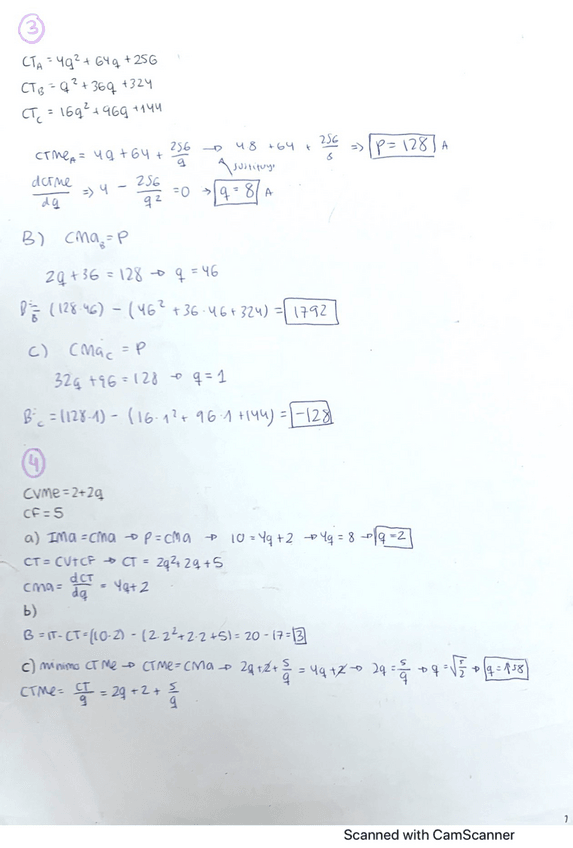 3
CTA = 4q² + 64q + 256
CTB = q² + 36q + 324
CTC = 16q² + 96q + 144
CTMeA = 4q + 64 + 256/q → 4·8 + 64 + 256/8 => P = 128 A
sustituyo
dCTMe/dq => 4 - 256/q² = 0 → q = 8 A
B) CMaB = P
2q + 36 = 128 → q = 46
B = (128·46) - (46² + 36·46 + 324) = 1792
C) CMaC = P
32q + 96 = 128 → q = 1
BC = (128·1) - (16·1² + 96·1 + 144) = -128
4
CVMe = 2 + 2q
CF = 5
a) IMa = CMa → P = CMa → 10 = 4q + 2 → 4q = 8 → q = 2
CT = CV + CF → CT = 2q² + 2q + 5
CMa = dCT/dq = 4q + 2
b)
B = IT - CT = (10·2) - (2·2² + 2·2 + 5) = 20 - 17 = 3
c) mínimo CTMe → CTMe = CMa → 2q + 2 + 5/q = 4q + 2 → 2q = 5/q → q = √5/2 → q = 1,58
CTMe = CT/q = 2q + 2 + 5/q
1
Scanned with CamScanner